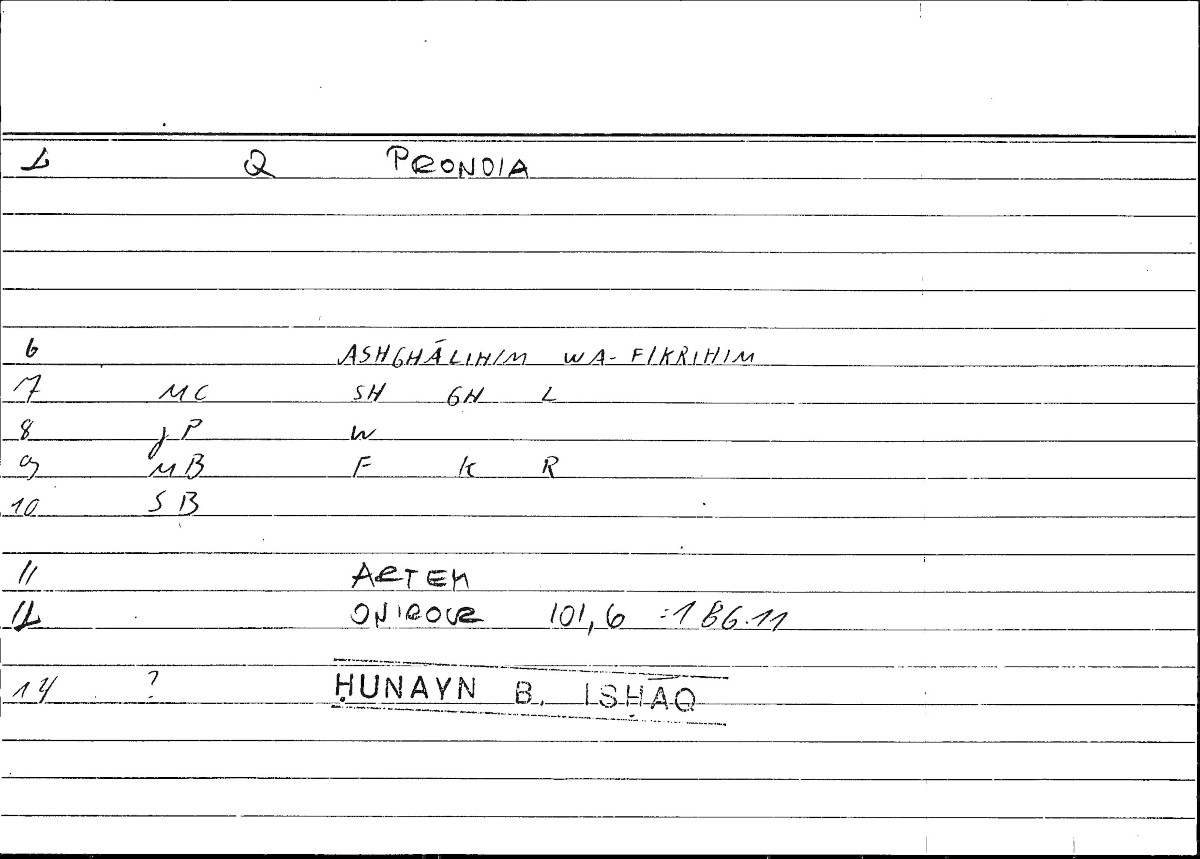 1 Q PRONOIA
6 ASHGHĀLIHIM WA-FIKRIHIM
7 MC SH GH L
8 JP W
9 MB F K R
10 SB
11 ARTEM
12 ONIROCR 101,6 =186.11
14 ? ḤUNAYN B. ISḤĀQ